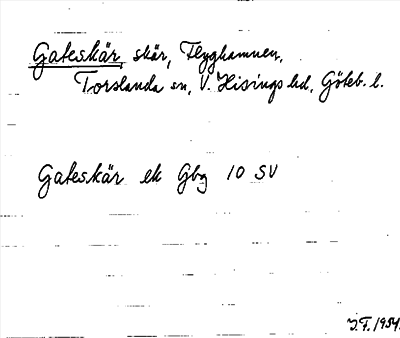 Gateskär, skär, Flyghamnen,
Torslanda sn, V. Hisings hd, Göteb. l.
Gateskär ek Gbg 10 SV
J.F. 1934.